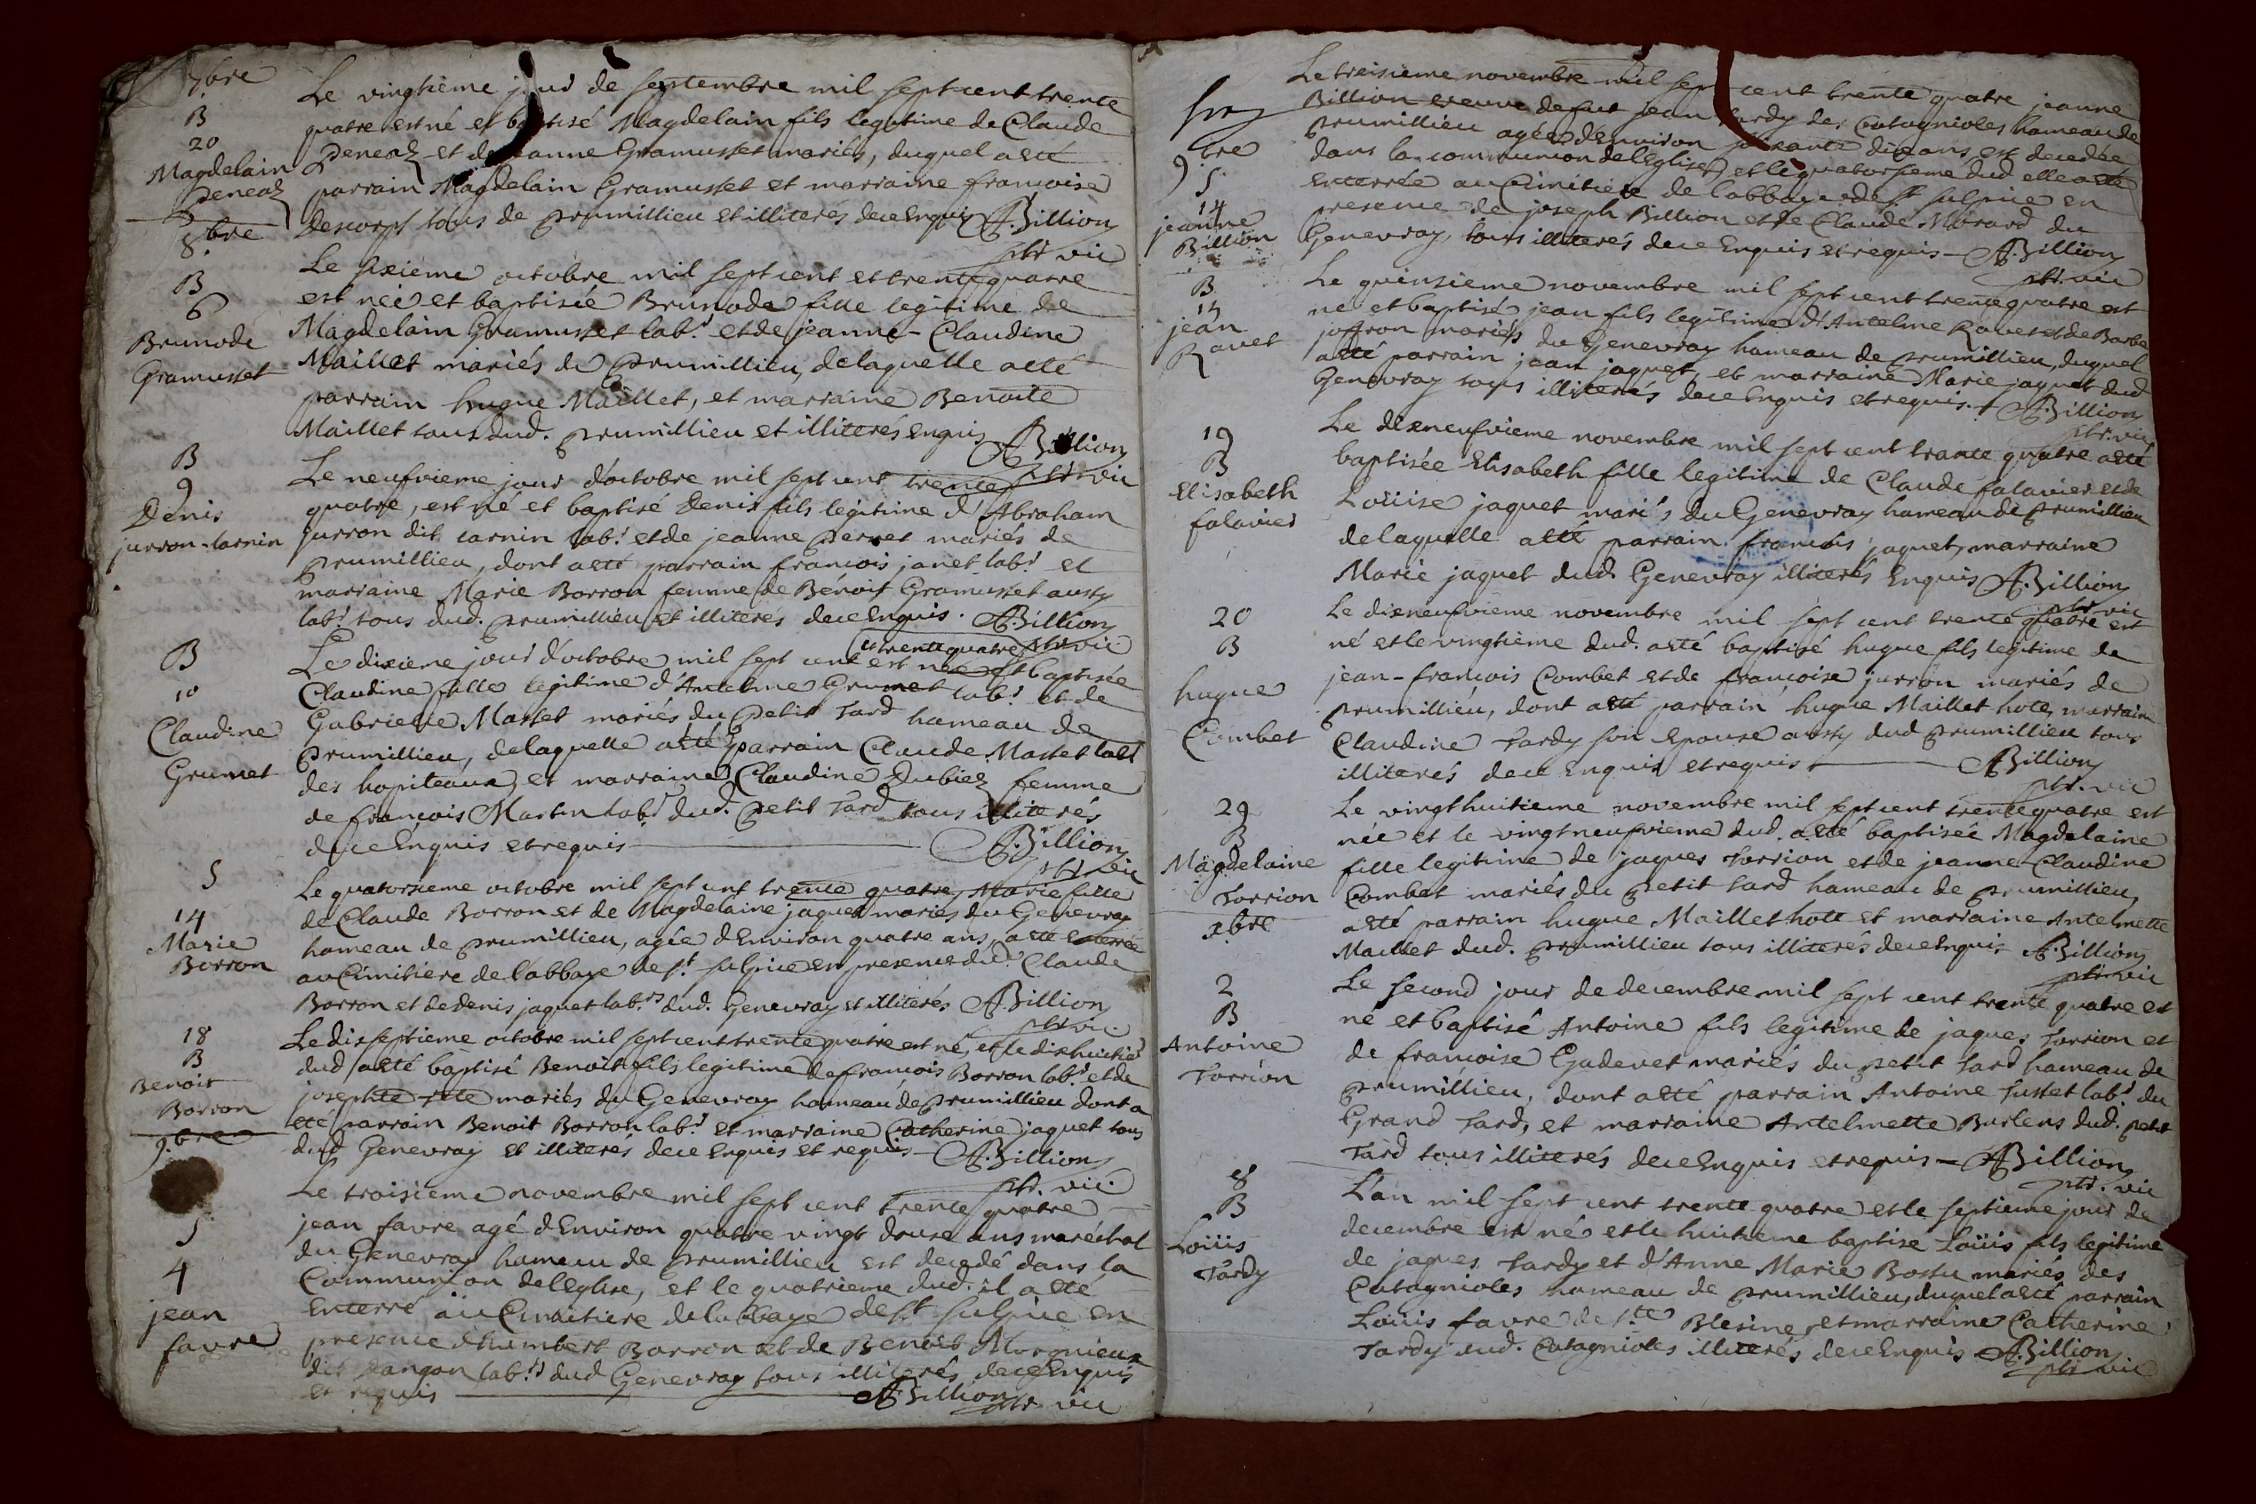 7bre
B
20
Magdelain
Peneaz
Le vingtième jour de septembre mil sept cent trente
quatre est né et baptisé Magdelain fils legitime de Claude
Peneaz et de jeanne Gramusset mariés, duquel a eté
parrain Magdelain Gramusset et marraine françoise
Descorps tous de prumillieu et illiterés de ce enquis A. Billion
ptr. vic
8.bre
B
6
Brunode
Gramusset
Le sixieme octobre mil sept cent et trente quatre
est née et baptisée Brunode fille legitime de
Magdelain Gramusset lab.r et de jeanne-Claudine
Maillet mariés de prumillieu, de laquelle a eté
parrain hugue Maillet, et marraine Benoite
Maillet tous dud. prumillieu et illiterés enquis A. Billion
ptr. vic
B
9
Denis
jurron-tarnin
Le neufvieme jour d'octobre mil sept cent trente
quatre, est né et baptisé Denis fils legitime d'Abraham
jurron dit tarnin lab.r et de jeanne perret mariés de
prumillieu, dont a eté parrain françois janet lab.r et
marraine Marie Borron femme de Bénoit Gramusset aussy
lab.r tous dud. prumillieu et illiterés de ce enquis. A. Billion
ptr. vic
B
10
Claudine
Grumet
et trente quatre
Le dixieme jour d'octobre mil sept cent est née et baptisée
Claudine fille legitime d'Antelme Grumet lab.r et de
Gabrielle Masset mariés du petit Tard hameau de
prumillieu, de laquelle a eté parrain Claude Masset lab.r
des hopiteaux, et marraine Claudine Dubiez femme
de françois Martin lab.r dud. petit Tard tous illiterés
de ce enquis et requis A. Billion
ptr. vic
S
14
Marie
Borron
Le quatorzieme octobre mil sept cent trente quatre, Marie fille
de Claude Borron et de Magdelaine jaquet mariés du Genevray
hameau de prumillieu, agée d'Environ quatre ans, a eté enterrée
au Cimitiere de l'abbaye de s.t sulpice en presence dud. Claude
Borron et de Denis jaquet lab.rs dud. Genevray et illiterés A. Billion
ptr. vic
18
B
Benoit
Borron
Le dixseptieme octobre mil sept cent trente quatre est né, et le dixhuitie
dud a eté baptisé Benoit fils legitime de françois Borron lab.r et de
josephte mariés du Genevray hameau de prumillieu dont a
eté parrain Benoit Borron lab.r et marraine Catherine jaquet tous
dud Genevray et illiterés de ce enquis et requis A. Billion
ptr. vic.
9.bre
S
4
jean
favre
Le troisieme novembre mil sept cent trente quatre
jean favre agé d'Environ quatre vingt douze ans maréchal
du Genevray hameau de prumillieu est decedé dans la
Communion de l'Eglise, et le quatrieme dud. il a eté
Enterré au Cimitiere de l'abbaye de s.t sulpice en
presence d'humbert Borron et de Benoit Morgnieux
dit lab.rs dud Genevray tous illiterés de ce Enquis
et requis A. Billion ptr. vic
9.bre
S
14
jeanne
Billion
Le treisieme novembre mil sept cent trente quatre jeanne
Billion veuve de fut jean Tardy des Catagnioles hameau de
prumillieu agée d'Environ soixante dix ans est decedée
dans la communion de l'Eglise, et le quatorsieme dud elle a eté
enterrée au Cimitiere de l'abbaye de s.t sulpice en
presence de joseph Billion et de Claude Morard du
Genevray, tous illiterés de ce Enquis et requis A. Billion
ptr. vic
B
14
jean
Ravet
Le quinsieme novembre mil sept cent trente quatre est
né et baptisé jean fils legitime d'Antelme Ravet et de Barbe
joffron mariés du Genevray hameau de prumillieu, duquel
a eté parrain jean jaquet, et marraine Marie jaquet dud
Genevray tous illiterés de ce Enquis et requis. A. Billion
ptr. vic
19
B
Elisabeth
falavier
Le dixneufvieme novembre mil sept cent trante quatre a eté
baptisée Elisabeth fille legitime de Claude falavier et de
Loüise jaquet mariés du Genevray hameau de prumillieu
de laquelle a eté parrain françois jaquet, marraine
Marie jaquet dud. Genevray illiterés Enquis A. Billion
ptr. vic
20
B
hugue
Combet
Le dixneufvieme novembre mil sept cent trente quatre est
né et le vingtieme dud. a eté baptisé hugue fils legitime de
jean-françois Combet et de françoise jurron mariés de
prumillieu, dont a eté parrain hugue Maillet hote, marraine
Claudine Tardy son Epouse aussy dud prumillieu tous
illiterés de ce Enquis et requis A. Billion
ptr. vic
29
B
Magdelaine
Torrion
Le vingthuitieme novembre mil sept cent trente quatre est
née et le vingtneufvieme dud. a eté baptisée Magdelaine
fille legitime de jaques Torrion et de jeanne-Claudine
Combet mariés du petit Tard hameau de prumillieu,
a eté parrain hugue Maillet hote et marraine Antelmette
Maillet dud. prumillieu tous illiterés de ce Enquis A. Billion
ptr. vic
xbre
2
B
Antoine
Torrion
Le second jour de decembre mil sept cent trente quatre est
né et baptisé Antoine fils legitime de jaques Torrion et
de françoise Gudevet mariés du petit Tard hameau de
prumillieu, dont a eté parrain Antoine Tusset lab.r du
Grand Tard, et marraine Antelmette Burlens dud. petit
Tard tous illiterés de ce Enquis et requis A. Billion
ptr. vic
8
B
Loüis
Tardy
L'an mil sept cent trente quatre et le septieme jour de
decembre est né et le huitieme baptisé Loüis fils legitime
de jaques Tardy et d'Anne Marie Bossu mariés des
Catagnioles hameau de prumillieu, duquel a eté parrain
Loüis favre de s.te Blesine, et marraine Catherine
Tardy dud. Catagnioles illiterés de ce Enquis A. Billion
ptr. vic